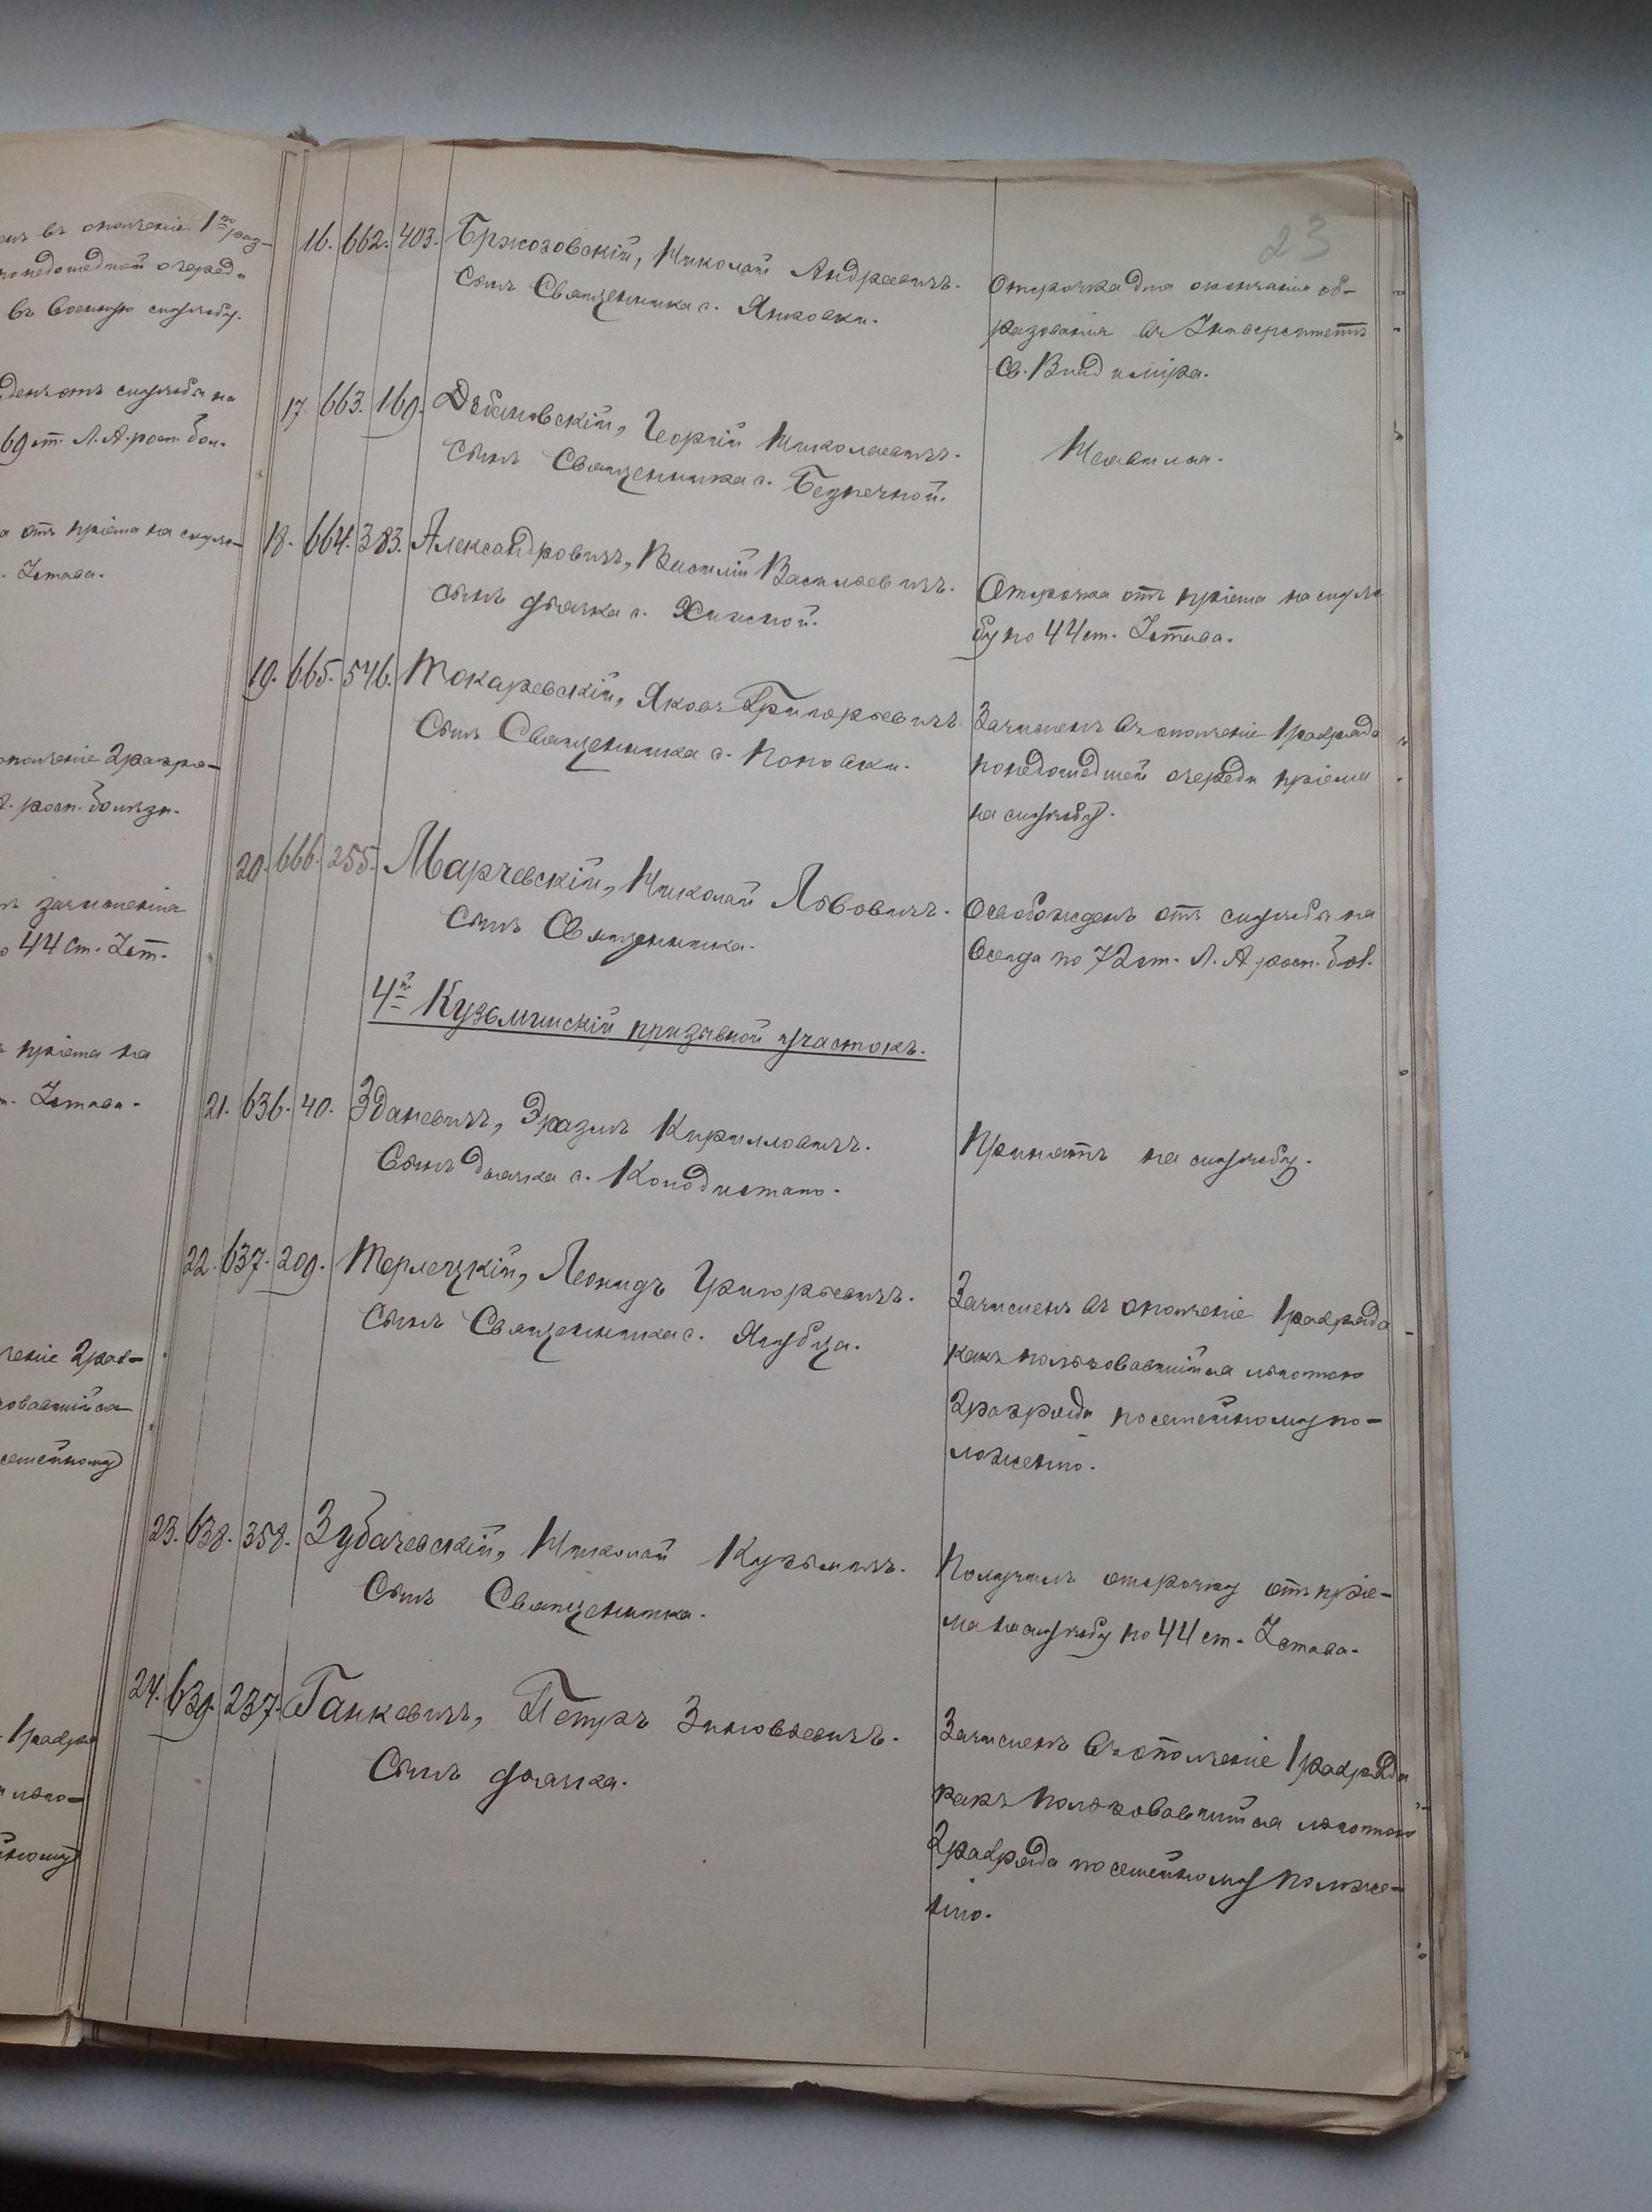 23
омъ въ ополченіе 1го раз-
по недошедшей очереди
въ военную службу.
денъ отъ службы на
69 ст. Л. А. росп. бол.
а отъ пріема на служ-
. Устава.
ополченіе 2 разря-
А. росп. болѣзн.
зачисленія
о 44 ст. Уст.
пріема на
Устава.
ченіе 2 раз-
зовавшійся
семейному
1 разря
льго-
йному
16. 662. 403. Бржозовскій, Николай Андреевичъ.
Сынъ Священника с. Янковки.
Отсрочка для окончанія об-
разованія въ Университетѣ
Св. Владиміра.
17. 663. 169. Дѣбановскій, Георгій Николаевичъ.
Сынъ Священника с. Безпечной.
Неявился.
18. 664. 383. Александровичъ, Василій Васильевичъ.
Сынъ дьячка с.
Отсрочка отъ пріема на служ
бу по 44 ст. Устава.
19. 665. 546. Токаревскій, Яковъ Григорьевичъ.
Сынъ Священника с. Поповки.
Зачисленъ въ ополченіе 1 разряда
по недошедшей очереди пріема
на службу.
20. 666. 255. Марчевскій, Николай Львовичъ.
Сынъ Священника.
Освобожденъ отъ службы на
всегда по 72 ст. Л. А. росп. бол.
4й Кузьминскій призывной участокъ.
21. 636. 40. Зданевичъ, Эразмъ Кирилловичъ.
Сынъ дьячка с. Колодистаго.
Принятъ на службу.
22. 637. 209. Терлецкій, Леонидъ Григорьевичъ.
Сынъ Священника с. Ягубца.
Зачисленъ въ ополченіе 1 разряда
какъ пользовавшійся льготою
2 разряда по семейному по-
ложенію.
23. 638. 358. Зубачевскій, Николай Кузьмичъ.
Сынъ Священника.
Получилъ отсрочку отъ пріе-
ма на службу по 44 ст. Устава.
24. 639. 237. Ганкевичъ, Петръ Зиновьевичъ.
Сынъ дьячка.
Зачисленъ въ ополченіе 1 разряда
какъ пользовавшійся льготою
2 разряда по семейному положе-
нію.